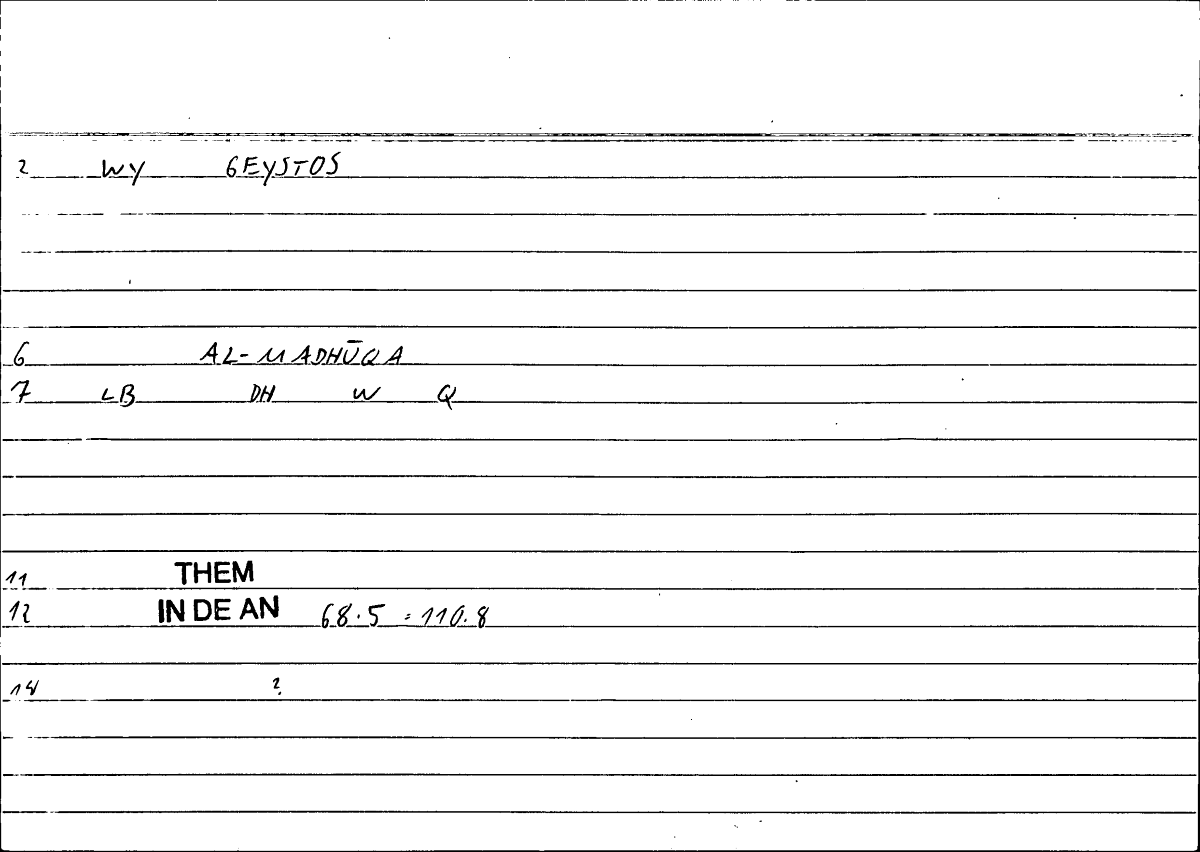 2 WY GEYSTOS
6 AL-MADHŪQA
7 LB DH W Q
11 THEM
12 IN DE AN 68.5 = 110.8
14 ?